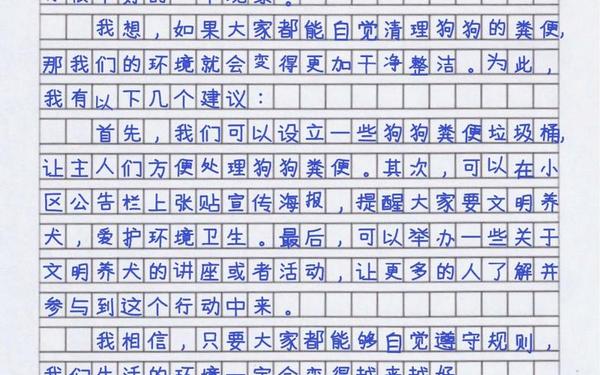 我想，如果大家都能自觉清理狗狗的粪便，
那我们的环境就会变得更加干净整洁。为此，
我有以下几个建议：
首先，我们可以设立一些狗狗粪便垃圾桶，
让主人们方便处理狗狗粪便。其次，可以在小
区公告栏上张贴宣传海报，提醒大家要文明养
犬，爱护环境卫生。最后，可以举办一些关于
文明养犬的讲座或者活动，让更多的人了解并
参与到这个行动中来。
我相信，只要大家都能够自觉遵守规则，
我们生活的环境一定会变得越来越好